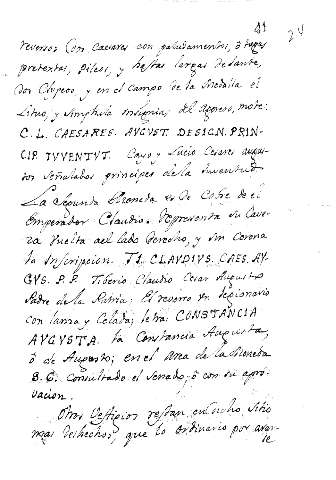 41
24
reversos Con Caesares con paludamentos, ò togas
pretextas, Pileos, y hastas largas delante,
dos Clypeos y en el campo de la Medalla el
Lituo, y Simpula insignia; del Agrero, mote:
C. L. CAESARES. AVGVST. DESIGN. PRIN-
CIP. IVVENTVT. Cayo y Lucio Cesares augus-
tos señalados principes de la Juventud.
La segunda Moneta es De Cobre de el
Emperador Claudio. Representa su Cave-
za vuelta ael lado derecho, y sin corona
la Inscripcion. TI. CLAVDIVS. CAES. AV-
GVS. P. P. Tiberio Claudio Cesar Augusto
Padre de la Patria: El reverso un legionario
con lanza y Celada; letra: CONSTANCIA
AVGVSTA. la Constancia Augusta,
ò de Augusto; en el Area de la Moneda
S. C. Consultado el Senado, ò con su apro-
vacion.
Otros Vestigios restan en dicho sitio
mas deshechos, que lo ordinario por aver-
se